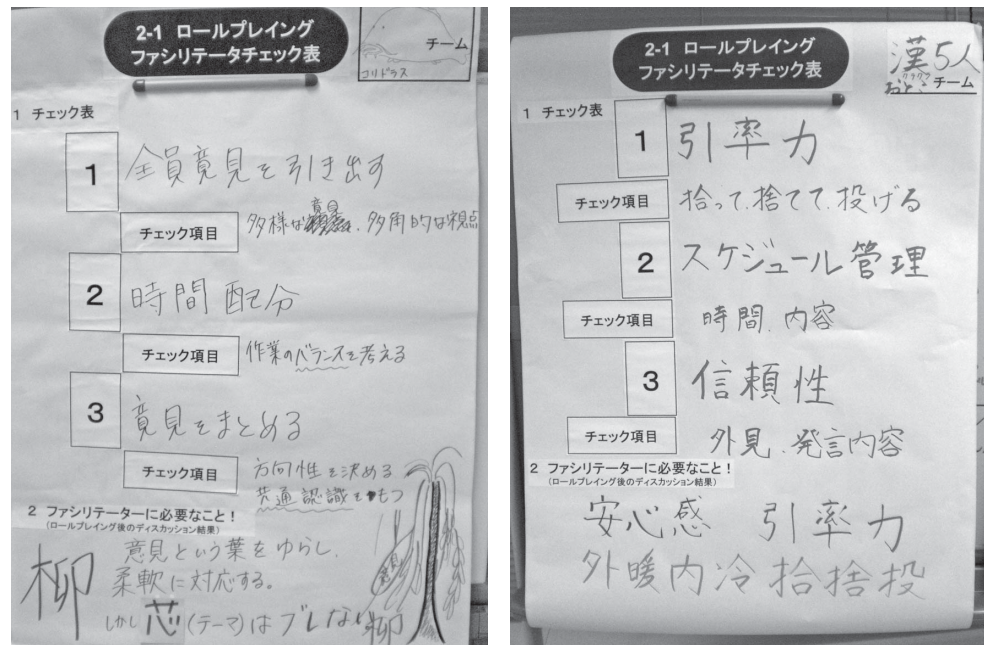 2-1 ロールプレイング
ファシリテータチェック表
チーム
コリドラス
1 チェック表
1
全員意見を引き出す
チェック項目
多様な意見、多角的な視点
2
時間配分
チェック項目
作業のバランスを考える
3
意見をまとめる
チェック項目
方向性を決める
共通認識をもつ
2 ファシリテーターに必要なこと!
(ロールプレイング後のディスカッション結果)
柳
意見という葉をゆらし、
柔軟に対応する。
しかし芯(テーマ)はブレない
意見
柳
2-1 ロールプレイング
ファシリテータチェック表
漢5人
おとこ
チーム
1 チェック表
1
引率力
チェック項目
拾って、捨てて、投げる
2
スケジュール管理
チェック項目
時間、内容
3
信頼性
チェック項目
外見、発言内容
2 ファシリテーターに必要なこと!
(ロールプレイング後のディスカッション結果)
安心感 引率力
外暖内冷拾捨投